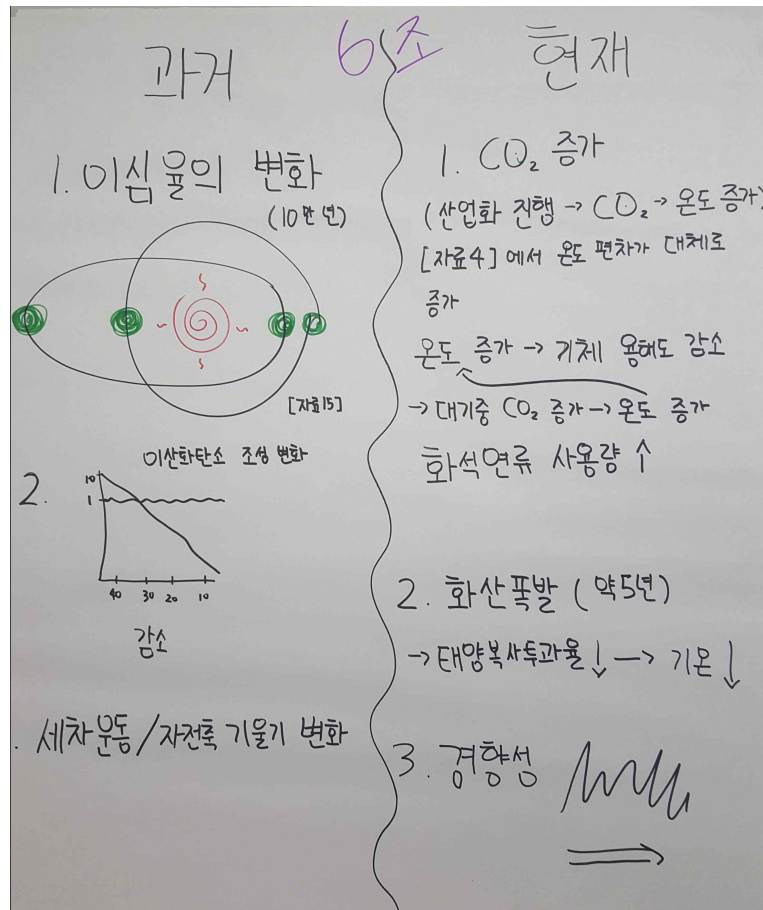 6조
과거
1. 이심율의 변화
(10만 년)
[자료15]
2.
이산화탄소 조성 변화
10
1
40 30 20 10
감소
. 세차운동/자전축 기울기 변화
현재
1. CO₂ 증가
(산업화 진행 → CO₂ → 온도 증가)
[자료4] 에서 온도 편차가 대체로
증가
온도 증가 → 기체 용해도 감소
→ 대기중 CO₂ 증가 → 온도 증가
화석연류 사용량 ↑
2. 화산폭발 (약5년)
→ 태양복사투과율 ↓ → 기온 ↓
3. 경향성